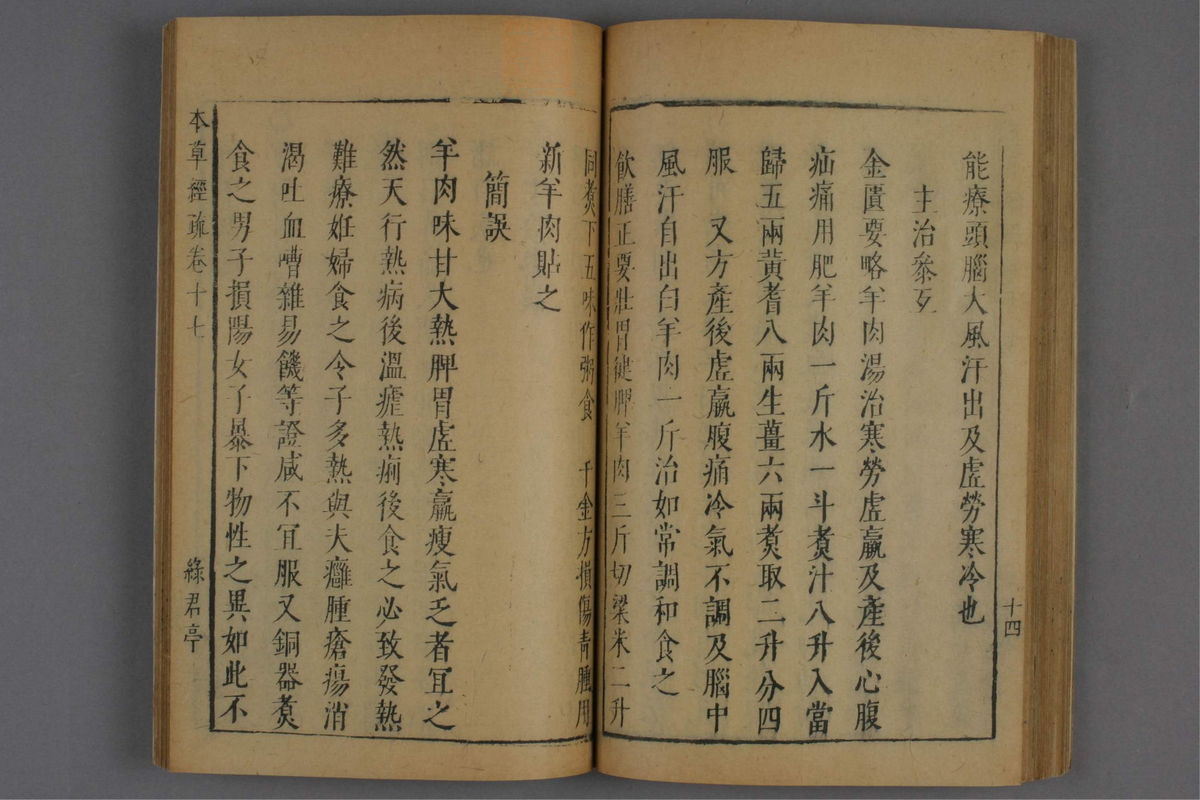 能療頭腦大風汗出及虛勞寒冷也
主治參互
金匱要略羊肉湯治寒勞虛羸及產後心腹
疝痛用肥羊肉一斤水一斗煑汁八升入當
歸五兩黃耆八兩生薑六兩煑取二升分四
服　又方產後虛羸腹痛冷氣不調及腦中
風汗自出白羊肉一斤治如常調和食之
飲膳正要壯胃健脾羊肉三斤切粱米二升
十四
同煑下五味作粥食　千金方損傷青腫用
新羊肉貼之
簡誤
羊肉味甘大熱脾胃虛寒羸瘦氣乏者宜之
然天行熱病後溫瘧熱痢後食之必致發熱
難療妊婦食之令子多熱與夫癰腫瘡瘍消
渴吐血嘈雜易饑等證咸不宜服又銅器煑
食之男子損陽女子暴下物性之異如此不
本草經疏卷十七
綠君亭